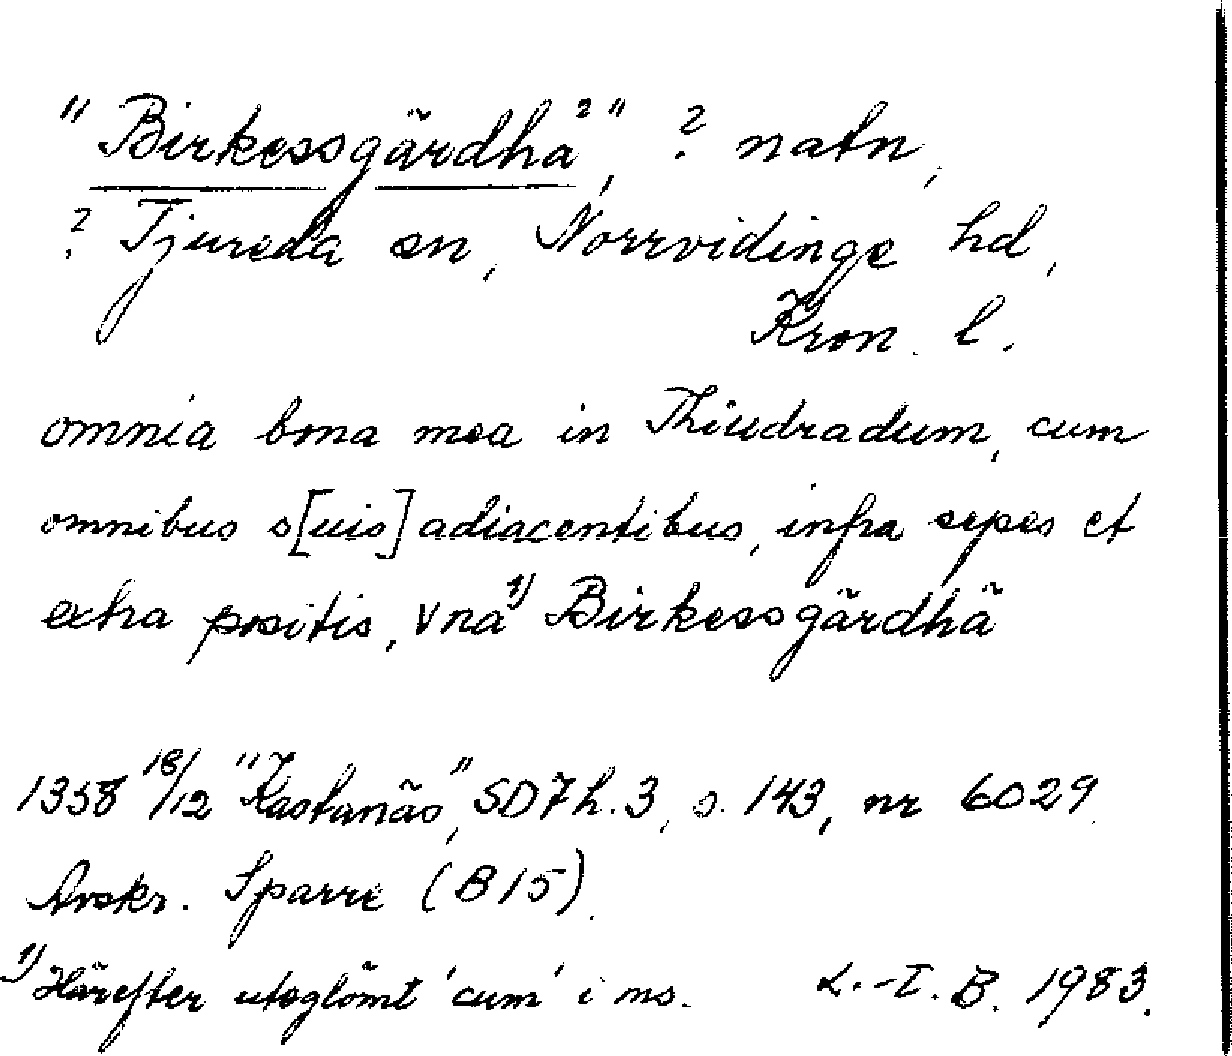 "Birkessgärdhä²", ? natn,
? Tjureda sn, Norrvidinge hd,
Kron. l.
omnia bona mea in Thiudradum, cum
omnibus s[uis] adiacentibus, infra sepes et
extra positis, vna¹⁾ Birkessgärdhä
1358 18/12 "Kastanäs", SD7 h. 3, s. 143, nr 6029.
Avskr. Sparre (B 15).
¹⁾ Härefter uteglömt 'cum' i ms. L.-I. B. 1983.